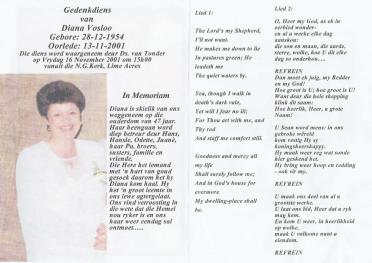 Gedenkdiens
van
Diana Vosloo
Gebore: 28-12-1954
Oorlede: 13-11-2001
Die diens word waargeneem deur Ds. van Tonder
op Vrydag 16 November 2001 om 15h00
vanuit die N.G.Kerk, Lime Acres
In Memoriam
Diana is skielik van ons
weggeneem op die
ouderdom van 47 jaar.
Haar heengaan word
diep betreur deur Hans,
Hansie, Odette, Juané,
haar Pa, broers,
susters, familie en
vriende.
Die Here het iemand
met 'n hart van goud
gesoek daarom het hy
Diana kom haal. Hy
het 'n groot leemte in
ons lewe agtergelaat.
Ons vind vertroosting in
die wete dat die Hemel
nou ryker is en ons
haar weer eendag sal
ontmoet.....
Lied 1:
The Lord's my Shepherd,
I'll not want.
He makes me down to lie
In pastures green; He
leadeth me
The quiet waters by.
Yea, though I walk in
death's dark vale,
Yet will I fear no ill;
For Thou art with me, and
Thy rod
And staff me comfort still.
Goodness and mercy all
my life
Shall surely follow me;
And in God's house for
evermore
My dwelling-place shall
be.
Lied 2:
O, Heer my God, as ek in
eerbied wonder-
en al u werke elke dag
aanskou:
die son en maan, die aarde,
sterre, wolke, hoe U dit elke
dag so onderhou....
REFREIN
Dan moet ek juig, my Redder
en my God!
Hoe groot is U; hoe groot is U!
Want deur die hele skepping
klink dit saam:
Hoe heerlik, Heer, u grote
Naam!
U Seun word mens: in ons
gebroke wêreld
kom vestig Hy sy
koningsheerskappy.
Hy maak weer reg wat sonde
hier geskend het.
Hy bring weer hoop en redding
- ook vir my.
REFREIN
U maak ons deel van al u
grootste werke.
U laat ons bid, Heer dat u ryk
mag kom.
En kom U weer, in heerlikheid
op wolke,
maak U volkome nunt u
eiendom.
REFREIN